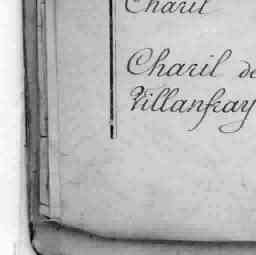 Charil
Charil de
Villanfray